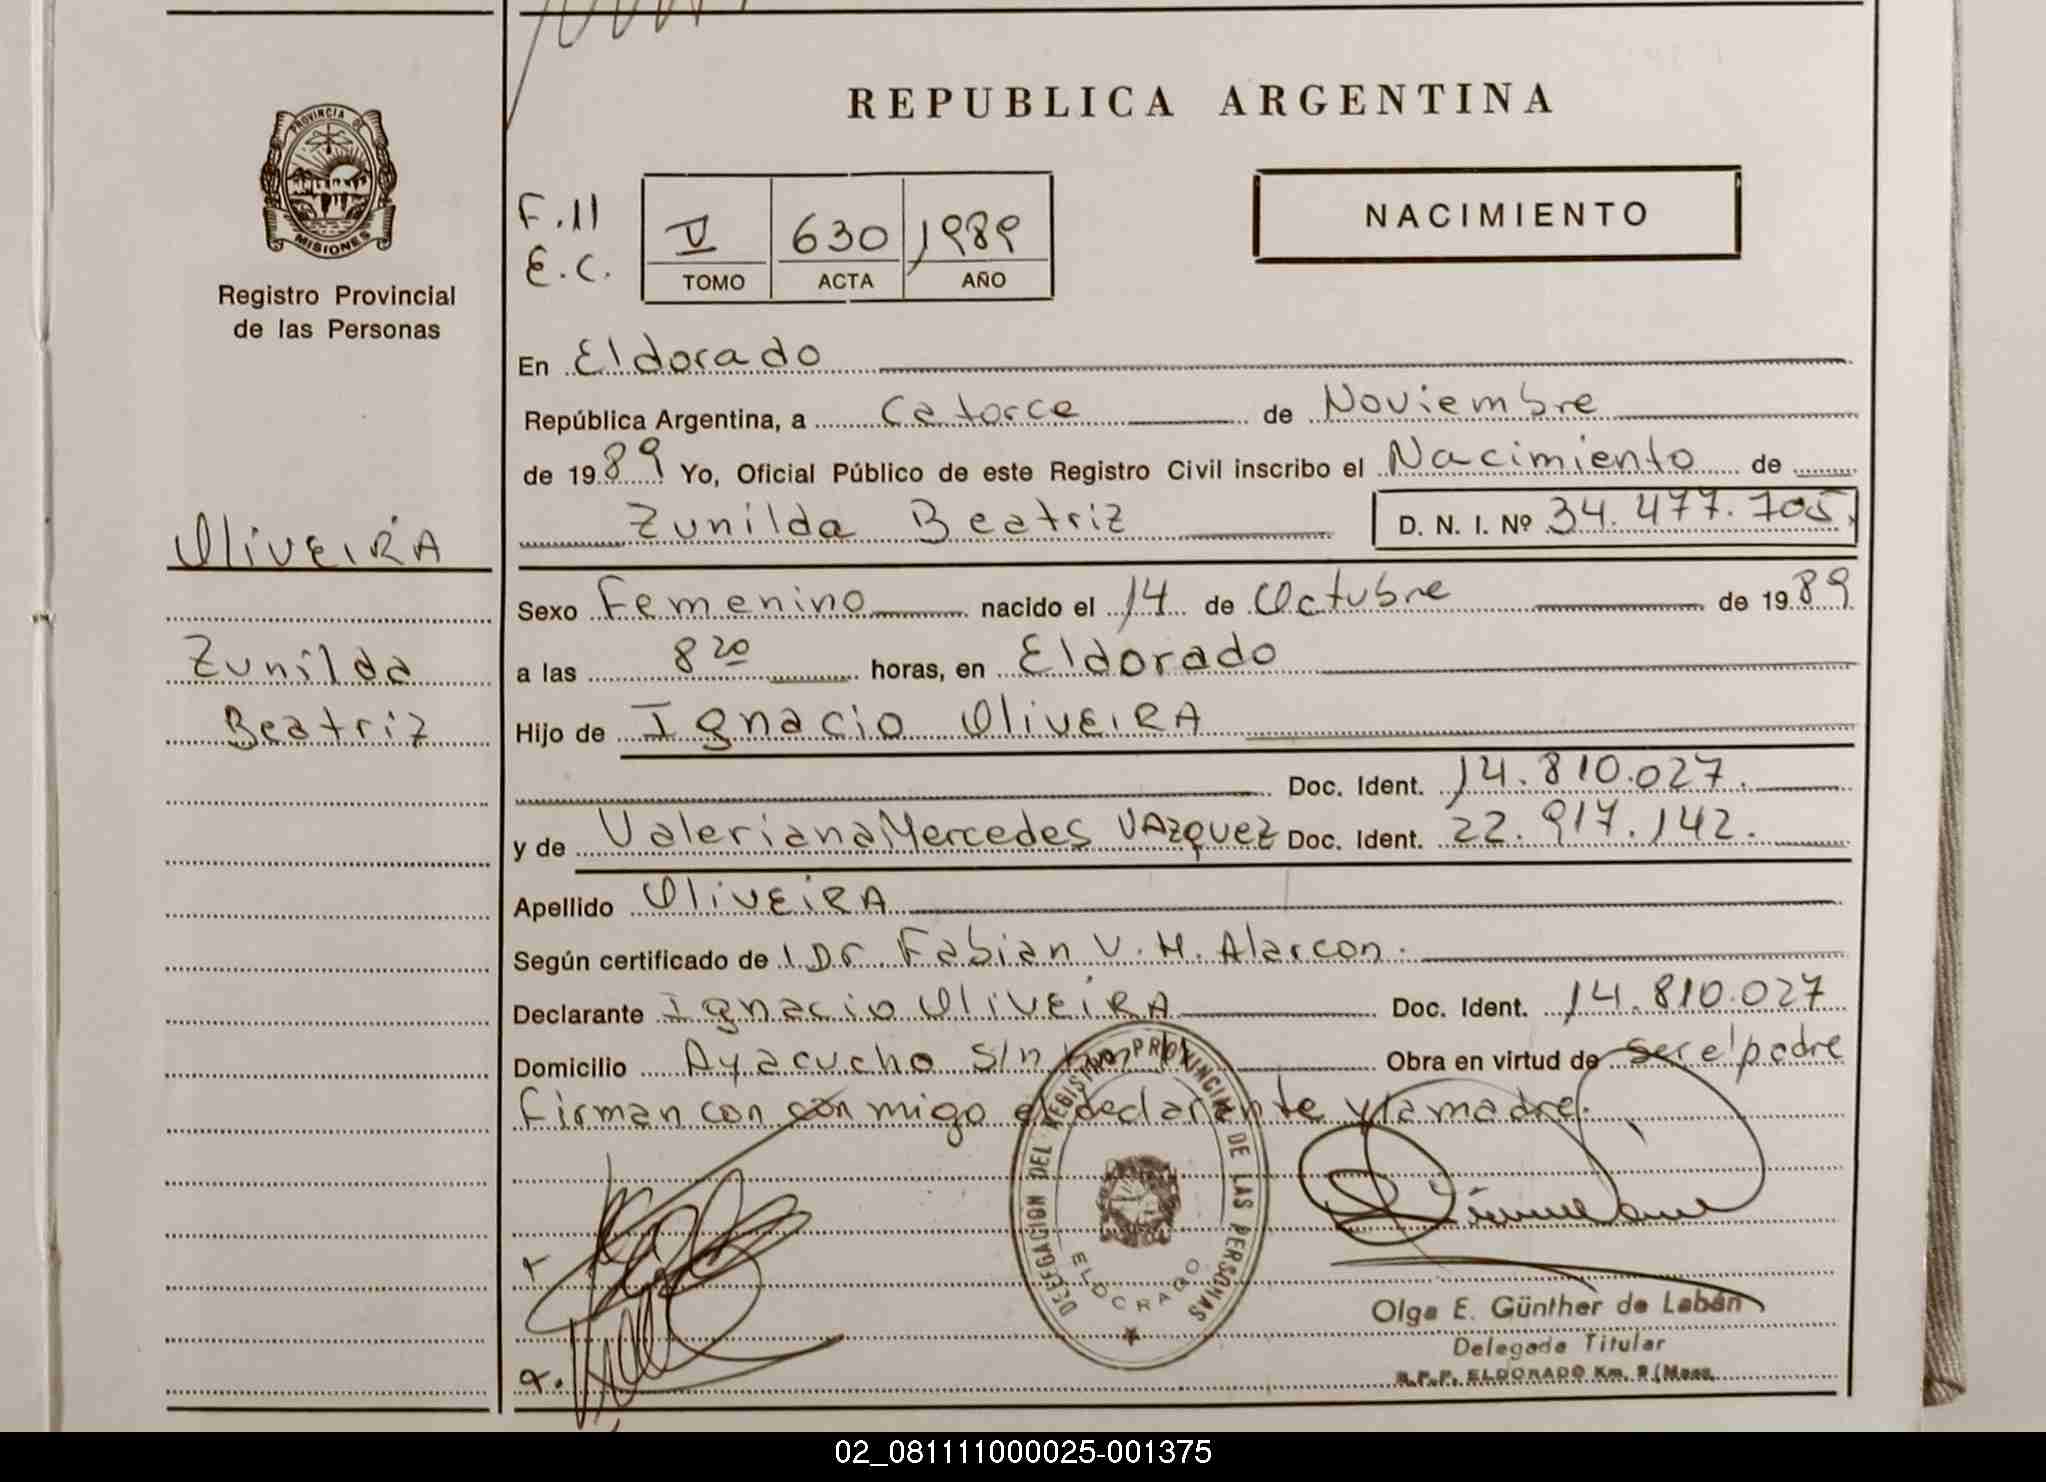 REPUBLICA ARGENTINA
PROVINCIA DE
MISIONES
Registro Provincial
de las Personas
F.11
E.C.
V 630 1989
TOMO ACTA AÑO
NACIMIENTO
En Eldorado
República Argentina, a Catorce de Noviembre
de 1989 Yo, Oficial Público de este Registro Civil inscribo el Nacimiento de
Zunilda Beatriz D. N. I. Nº 34.477.705.
OliVEiRA
Zunilda
Beatriz
Sexo Femenino nacido el 14 de Octubre de 1989
a las 8 20 horas, en Eldorado
Hijo de Ignacio OliVEiRA
Doc. Ident. 14.810.027.
y de Valeriana Mercedes VAzquez Doc. Ident. 22.917.142.
Apellido OliVEiRA
Según certificado de Dr. Fabian V. H. Alarcon.
Declarante Ignacio OliVEiRA Doc. Ident. 14.810.027
Domicilio Ayacucho S/n Obra en virtud de ser el padre
Firman con con migo el declarante y la madre.
DELEGACION DEL REGISTRO PROVINCIAL DE LAS PERSONAS
ELDORADO
Olga E. Günther de Labán
Delegada Titular
R.P.P. ELDORADO Km. 9 (Mnes.
02_081111000025-001375